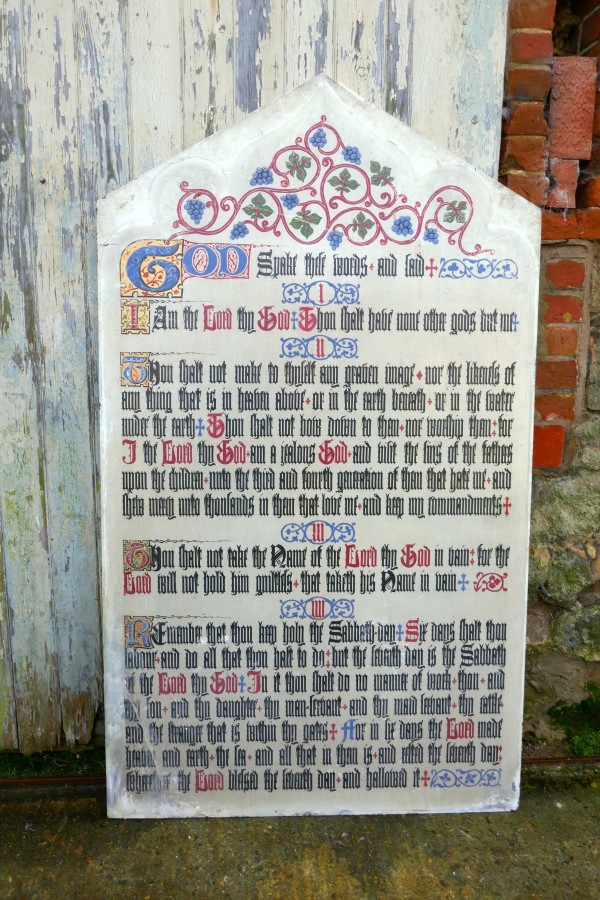 GOD Spake these words and said
I
I Am the Lord thy God Thou shalt have none other gods but me
II
Thou shalt not make to thyself any graven image nor the likeness of
any thing that is in heaven above or in the earth beneath or in the water
under the earth Thou shalt not bow down to them nor worship them for
I the Lord thy God am a jealous God and visit the sins of the fathers
upon the children unto the third and fourth generation of them that hate me and
shew mercy unto thousands in them that love me and keep my commandments
III
Thou shalt not take the Name of the Lord thy God in vain for the
Lord will not hold him guiltless that taketh his Name in vain
IIII
Remember that thou keep holy the Sabbath-day Six days shalt thou
labour and do all that thou hast to do but the seventh day is the Sabbath
of the Lord thy God In it thou shalt do no manner of work thou and
thy son and thy daughter thy man-servant and thy maid servant thy cattle
and the stranger that is within thy gates For in six days the Lord made
heaven and earth the sea and all that in them is and rested the seventh day
wherefore the Lord blessed the seventh day and hallowed it